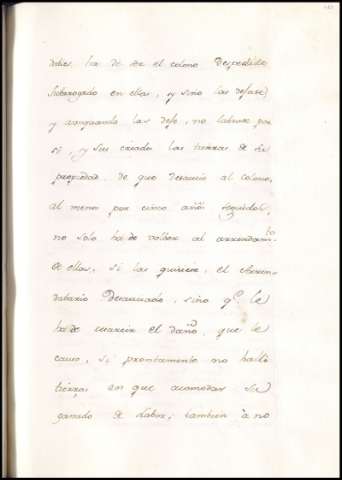 dades, ha de ser el colono Despedido
Subrrogado en ellas, y sino las dejase
y aunquando las deje, no labrare por
si, y sus criados las tierras de su
propiedad, de que desaució al colono,
al menos por cinco años seguidos,
no solo ha de volber al arrendam.to
de ellas, si las quisiere, el Arren-
datario Desauciado, sino q.e le
ha de resarcir el daño, que le
causó, si prontamente no halló
tierras en que acomodar su
ganado de Labor; tambien à no